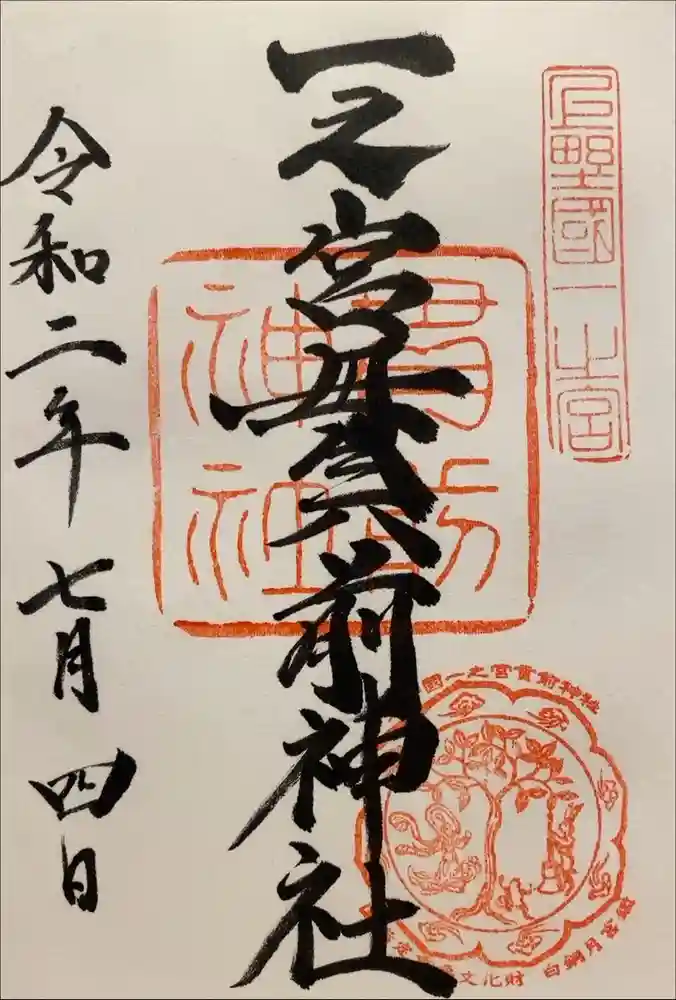 上野國一之宮
一之宮貫前神社
貫前
神社
國一之宮貫前神社
文化財 白銅月宮鑑
令和二年七月四日